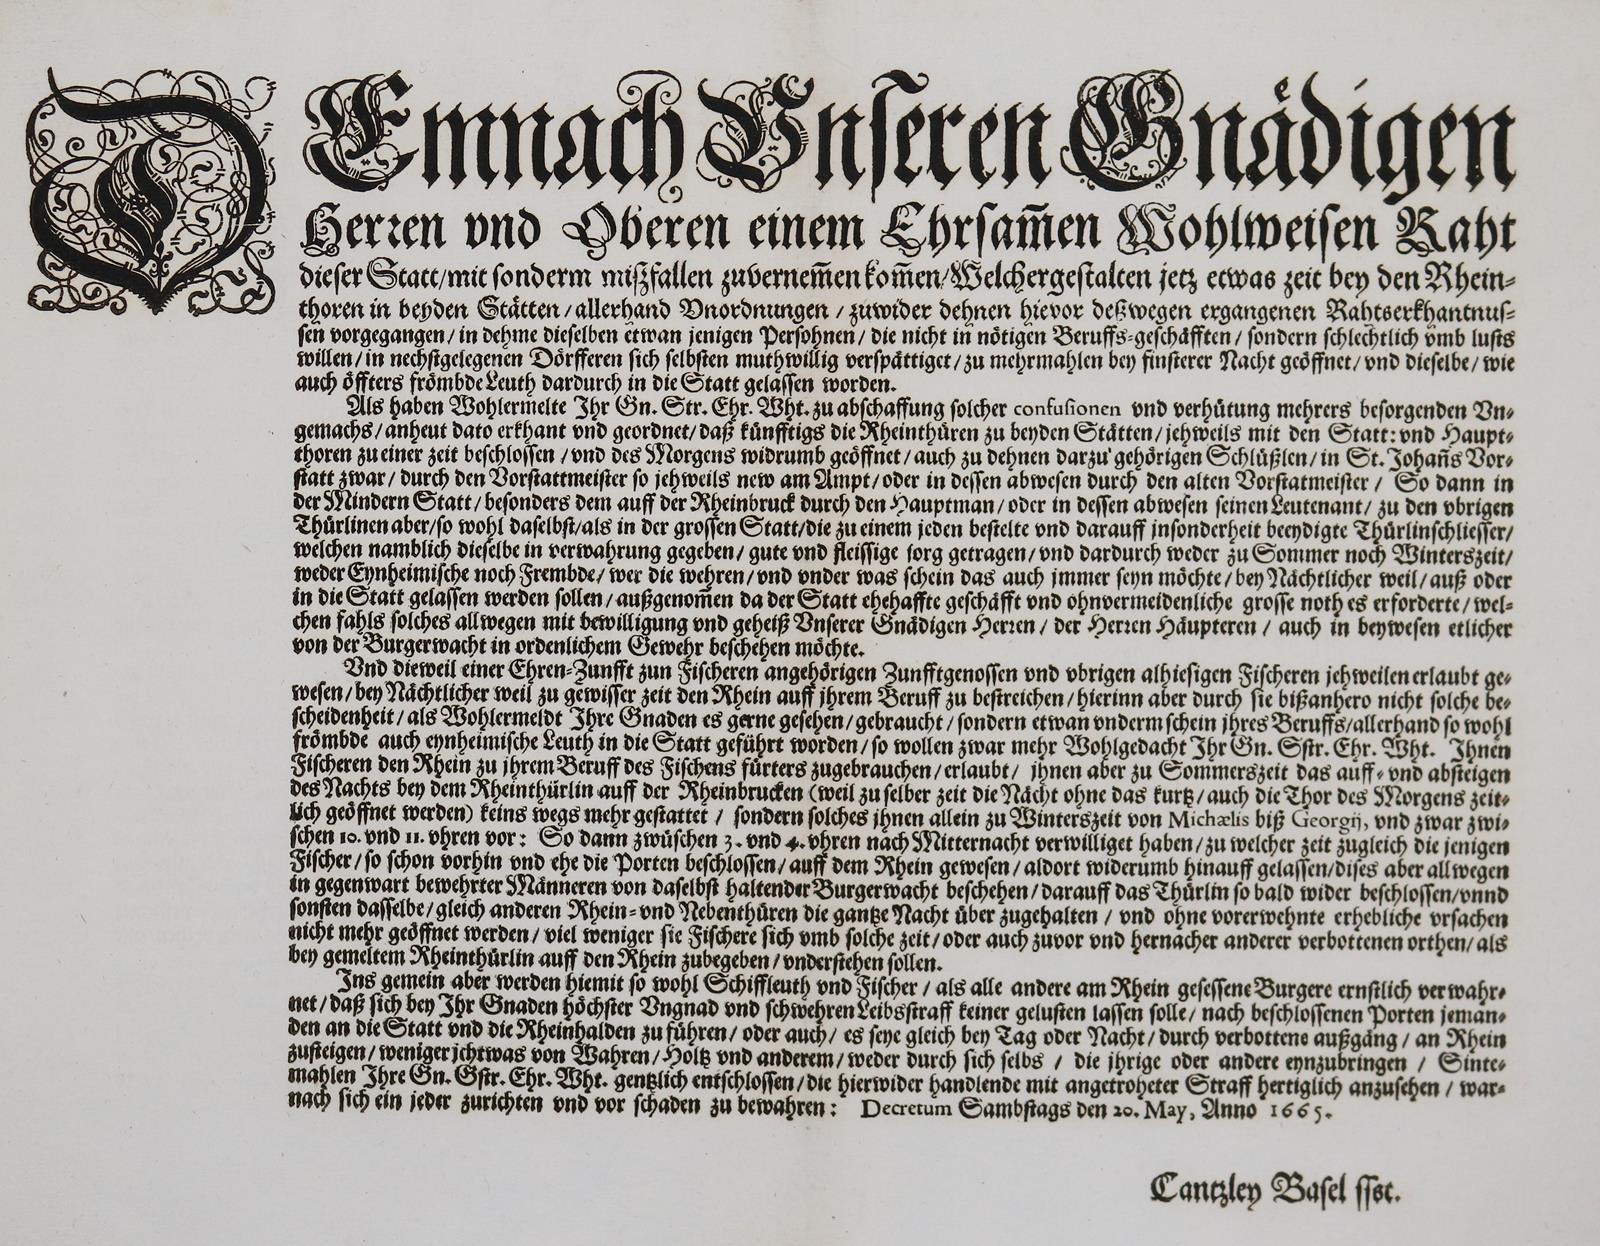 DEmnach Vnseren Gnädigen
Herren vnd Oberen einem Ehrsam̃en Wohlweisen Raht
dieser Statt/mit sonderm mißfallen zuvernem̃en kom̃en/Welchergestalten jetz etwas zeit bey den Rhein-
thoren in beyden Stätten/allerhand Vnordnungen/zuwider dehnen hievor deßwegen ergangenen Rahtserkhantnus-
sen vorgegangen/in dehme dieselben etwan jenigen Persohnen/die nicht in nötigen Beruffs-geschäfften/sondern schlechtlich vmb lusts
willen/in nechstgelegenen Dörfferen sich selbsten muthwillig verspättiget/zu mehrmahlen bey finsterer Nacht geöffnet/vnd dieselbe/wie
auch öffters frömbde Leuth dardurch in die Statt gelassen worden.
Als haben Wohlermelte Ihr Gn. Str. Ehr. Wht. zu abschaffung solcher confusionen vnd verhütung mehrers besorgenden Vn-
gemachs/anheut dato erkhant vnd geordnet/daß künfftigs die Rheinthüren zu beyden Stätten/jehweils mit den Statt: vnd Haupt-
thoren zu einer zeit beschlossen/vnd des Morgens widrumb geöffnet/auch zu dehnen darzu gehörigen Schlüßlen/in St. Johañs Vor-
statt zwar/durch den Vorstattmeister so jehweils new am Ampt/oder in dessen abwesen durch den alten Vorstatmeister/ So dann in
der Mindern Statt/besonders dem auff der Rheinbruck durch den Hauptman/oder in dessen abwesen seinen Leutenant/zu den vbrigen
Thürlinen aber/so wohl daselbst/als in der grossen Statt/die zu einem jeden bestelte vnd darauff jnsonderheit beeydigte Thürlinschliesser/
welchen namblich dieselbe in verwahrung gegeben/gute vnd fleissige sorg getragen/vnd dardurch weder zu Sommer noch Winterszeit/
weder Eynheimische noch Frembde/wer die wehren/vnd vnder was schein das auch jmmer seyn möchte/bey Nächtlicher weil/auß oder
in die Statt gelassen werden sollen/außgenom̃en da der Statt ehehaffte geschäfft vnd ohnvermeidenliche grosse noth es erforderte/wel-
chen fahls solches allwegen mit bewilligung vnd geheiß Vnserer Gnädigen Herren/der Herren Häupteren/auch in beywesen etlicher
von der Burgerwacht in ordenlichem Gewehr beschehen möchte.
Vnd dieweil einer Ehren-Zunfft zun Fischeren angehörigen Zunfftgenossen vnd vbrigen alhiesigen Fischeren jehweilen erlaubt ge-
wesen/bey Nächtlicher weil zu gewisser zeit den Rhein auff jhrem Beruff zu bestreichen/hierinn aber durch sie bißanhero nicht solche be-
scheidenheit/als Wohlermeldt Ihre Gnaden es gerne gesehen/gebraucht/sondern etwan vnderm schein jhres Beruffs/allerhand so wohl
frömbde auch eynheimische Leuth in die Statt geführt worden/so wollen zwar mehr Wohlgedacht Ihr Gn. Sstr. Ehr. Wht. Ihnen
Fischeren den Rhein zu jhrem Beruff des Fischens fürters zugebrauchen/erlaubt/ jhnen aber zu Sommerszeit das auff- vnd absteigen
des Nachts bey dem Rheinthürlin auff der Rheinbrucken (weil zu selber zeit die Nächt ohne das kurtz/auch die Thor des Morgens zeit-
lich geöffnet werden) keins wegs mehr gestattet/ sondern solches jhnen allein zu Winterszeit von Michælis biß Georgij, vnd zwar zwi-
schen 10. vnd 11. vhren vor: So dann zwüschen 3. vnd 4. vhren nach Mitternacht verwilliget haben/zu welcher zeit zugleich die jenigen
Fischer/so schon vorhin vnd ehe die Porten beschlossen/auff dem Rhein gewesen/aldort widerumb hinauff gelassen/dises aber allwegen
in gegenwart bewehrter Männeren von daselbst haltender Burgerwacht beschehen/darauff das Thürlin so bald wider beschlossen/vnnd
sonsten dasselbe/gleich anderen Rhein- vnd Nebenthüren die gantze Nacht über zugehalten/vnd ohne vorerwehnte erhebliche vrsachen
nicht mehr geöffnet werden/viel weniger sie Fischere sich vmb solche zeit/oder auch zuvor vnd hernacher anderer verbottenen orthen/als
bey gemeltem Rheinthürlin auff den Rhein zubegeben/vnderstehen sollen.
Ins gemein aber werden hiemit so wohl Schiffleuth vnd Fischer/als alle andere am Rhein gesessene Burgere ernstlich verwahr-
net/daß sich bey Ihr Gnaden höchster Vngnad vnd schwehren Leibsstraff keiner gelusten lassen solle/nach beschlossenen Porten jeman-
den an die Statt vnd die Rheinhalden zu führen/oder auch/es seye gleich bey Tag oder Nacht/durch verbottene außgäng/an Rhein
zusteigen/weniger jchtwas von Wahren/Holtz vnd anderem/weder durch sich selbs/ die jhrige oder andere eynzubringen/ Sinte-
mahlen Ihre Gn. Gstr. Ehr. Wht. gentzlich entschlossen/die hierwider handlende mit angetroheter Straff hertiglich anzusehen/war-
nach sich ein jeder zurichten vnd vor schaden zu bewahren: Decretum Sambstags den 20. May, Anno 1665.
Cantzley Basel sst.